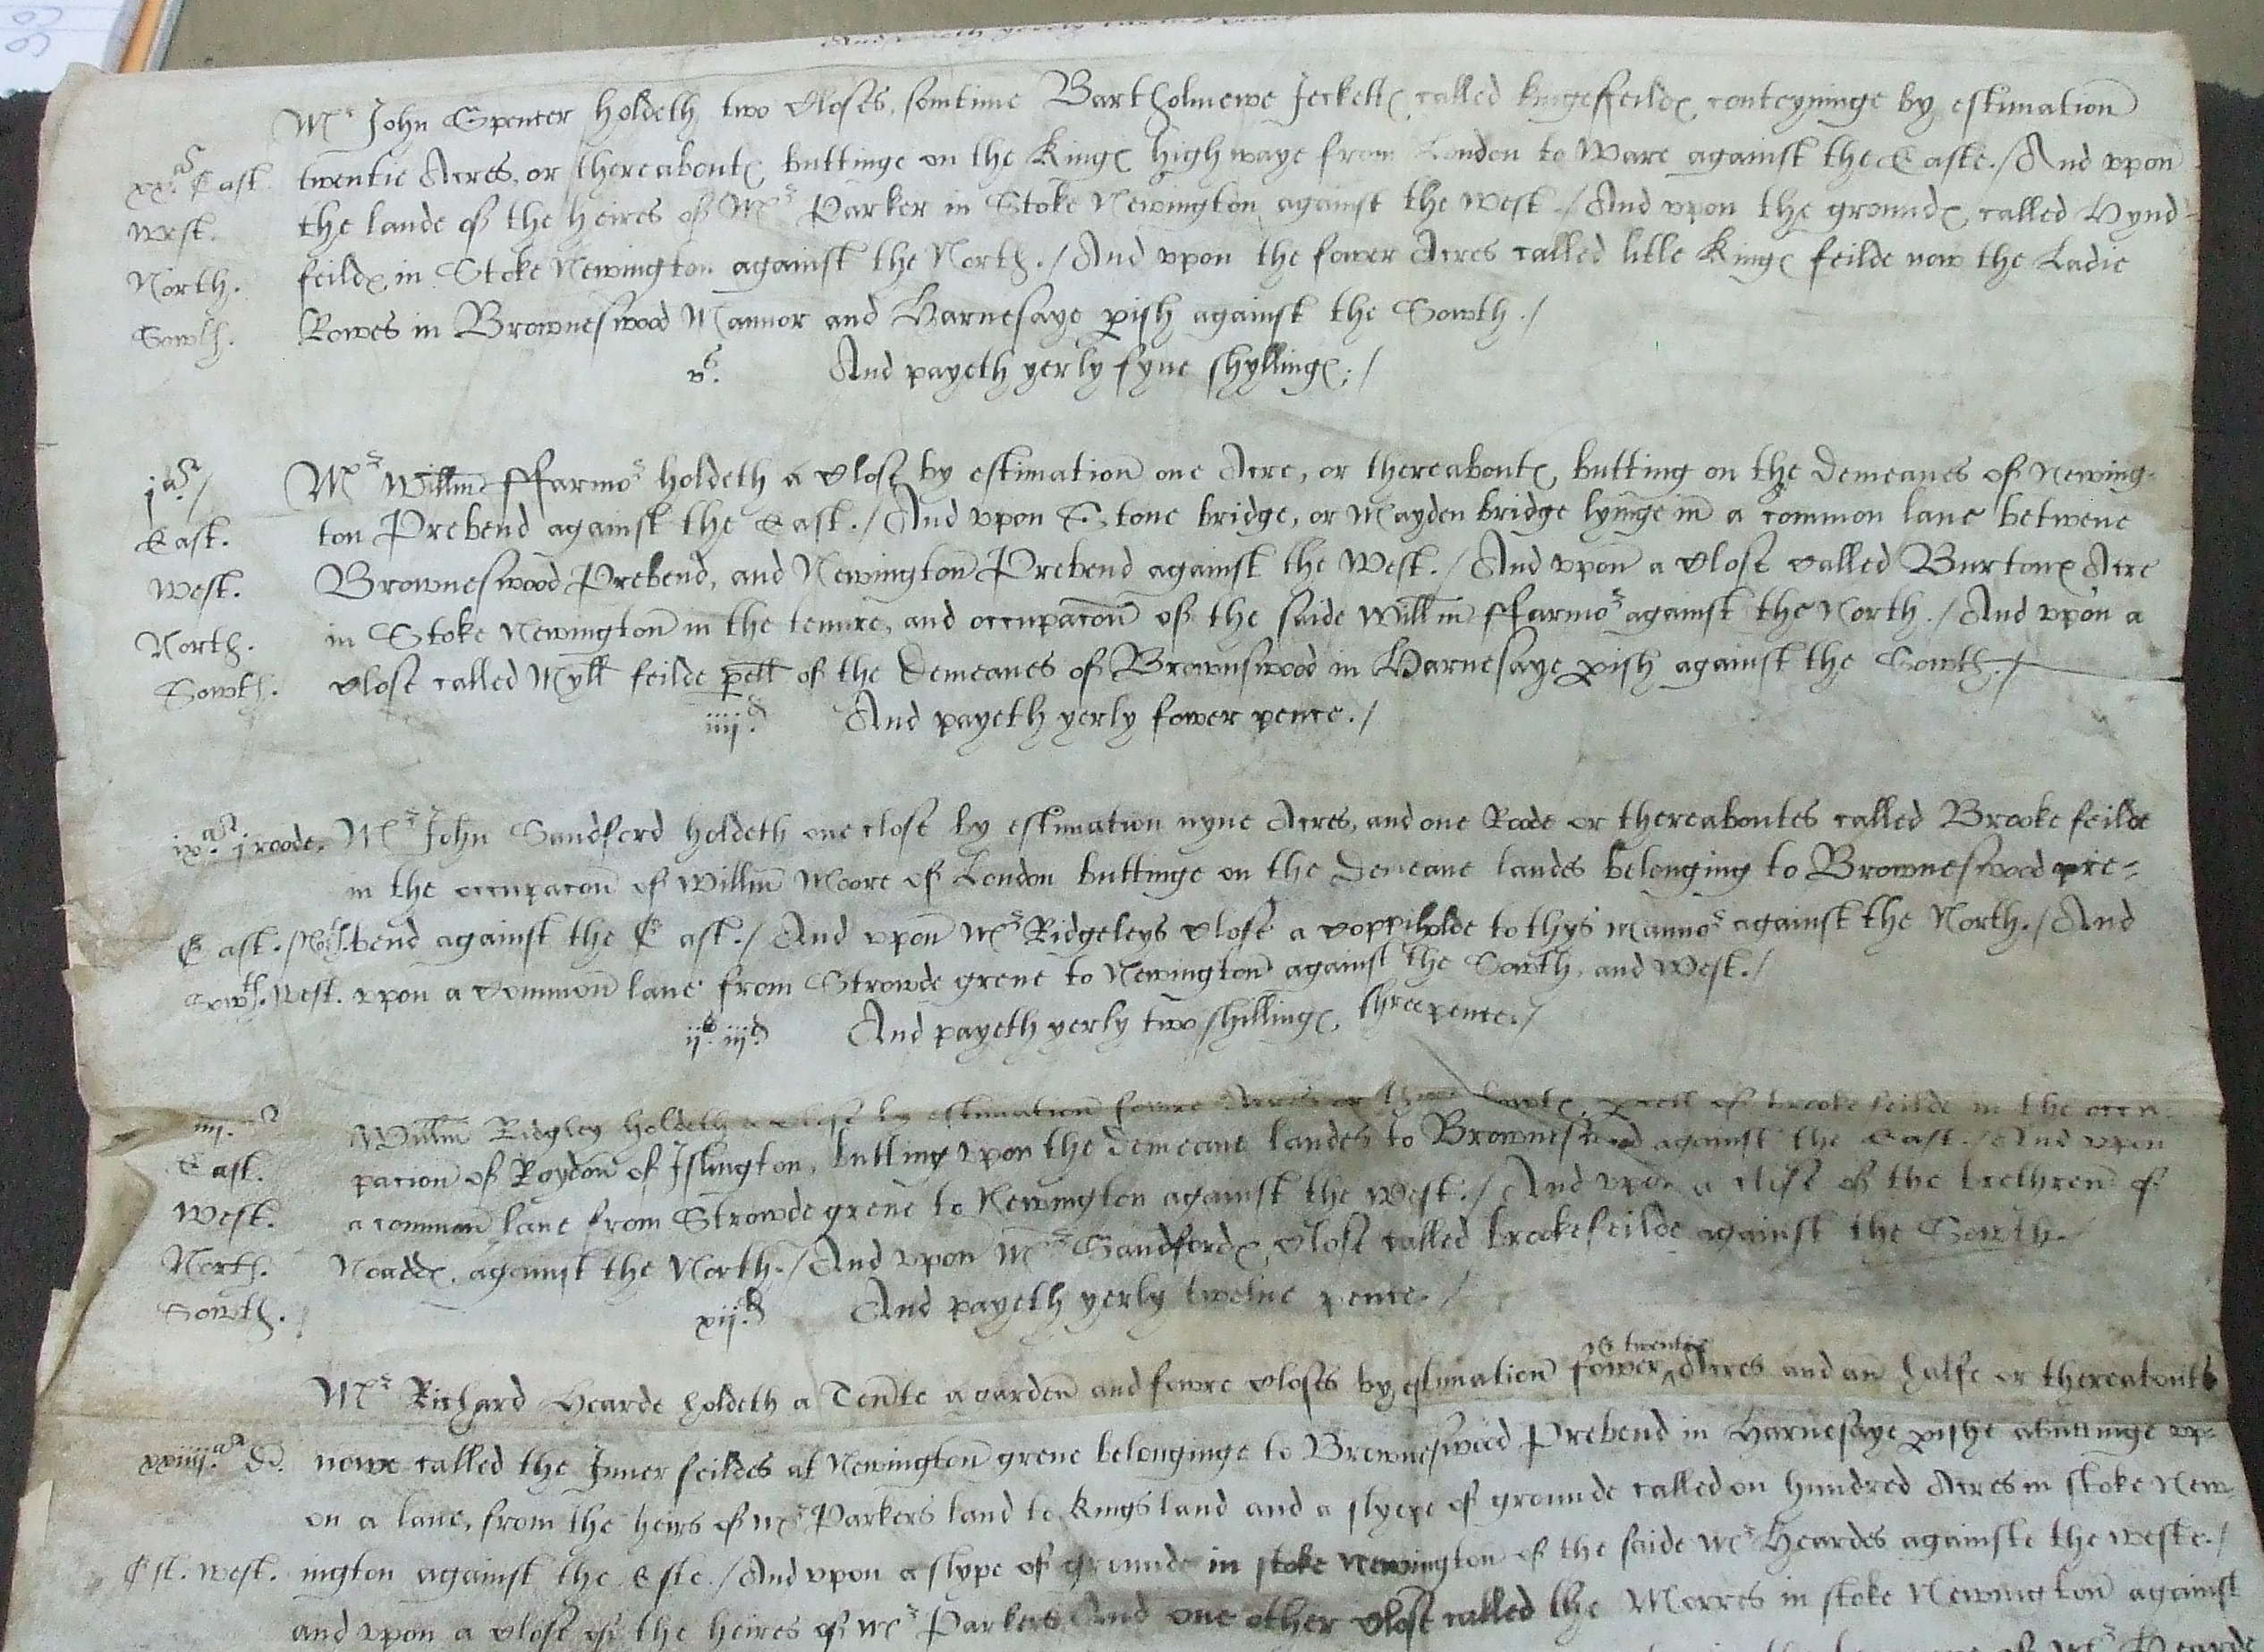 Mr John Spencer holdeth two Closes, somtime Bartholmewe Jeckells, called kingesfeilds, conteyninge by estimation
xx.as East. twentie Acres, or thereabouts buttinge on the Kings high waye from London to Ware against the Easte./ And vpon
West. the lande of the heires of Mrs Parker in Stoke Newington against the West./ And vpon the grounds, called Hynd-
North. feilds, in Stoke Newington against the North./ And vpon the fower Acres called litle Kings feilde now the Ladie
Sowth. Rowes in Browneswood Mannor and Harnesaye pish against the Sowth./
vs. And payeth yerly fyue shyllings;/
ja./ Mr Willm ffarmor holdeth a Close by estimation one Acre, or thereabouts, butting on the Demeanes of Newing-
East. ton Prebend against the East./ And vpon Stone bridge, or Mayden bridge lyinge in a common lane betwene
West. Browneswood Prebend, and Newington Prebend against the West./ And vpon a Close Called Burtons Acre
North. in Stoke Newington in the tenure, and occupacon of the saide Willm ffarmor against the North./ And vpon a
Sowth. Close called Myll feilde pcell of the Demeanes of Brownswood in Harnesaye pish against the Sowth./
iiijd. And payeth yerly fower pence./
ix.a j roode. Mr John Sandford holdeth one close by estimation nyne Acres, and one Roode or thereaboutes called Brooke feilde
in the occupacon of Willm Moore of London buttinge on the Demeane landes belonging to Browneswood pre-
East. North. bend against the East./ And vpon Mr Ridgeleys Close a Coppiholde to thys mannor against the North./ And
Sowth. West. vpon a Common lane from Strowde grene to Newington against the Sowth, and West./
ijs. iijd. And payeth yerly two shillings, three pence./
iiij.a Willm Ridgley holdeth a Close by estimation fowre Acres or thereabowts, pcell of brooke feilde in the occu-
East. pacion of Roydon of Islington, butting vpon the demeane landes to Browneswood against the East./ And vpon
West. a common lane from Strowde grene to Newington against the West./ And vpon a close of the brethren of
North. Noadds, against the North./ And vpon Mr Sandfords, Close called brookefeilde against the Sowth.
Sowth. xijd. And payeth yerly twelue pence./
& twentie
Mr Richard Hearde holdeth a Tente a garden and fowre Closes by estimation fower ^ Acres and an halfe or thereabouts
xxiiij.a di. nowe called the Inner feildes at Newington grene belonginge to Browneswood Prebend in Harnesaye pishe abuttinge vp-
on a lane, from the heirs of Mr Parkers land to kingsland and a slyepe of grounde called on hundred Acres in stoke New-
Est. West. ington against the Este./ And vpon a slype of grounde in stoke Newington of the saide Mr Heardes againste the weste./
and vpon a Close of the heires of Mr Parkers And one other Close called the Morres in stoke Newington against